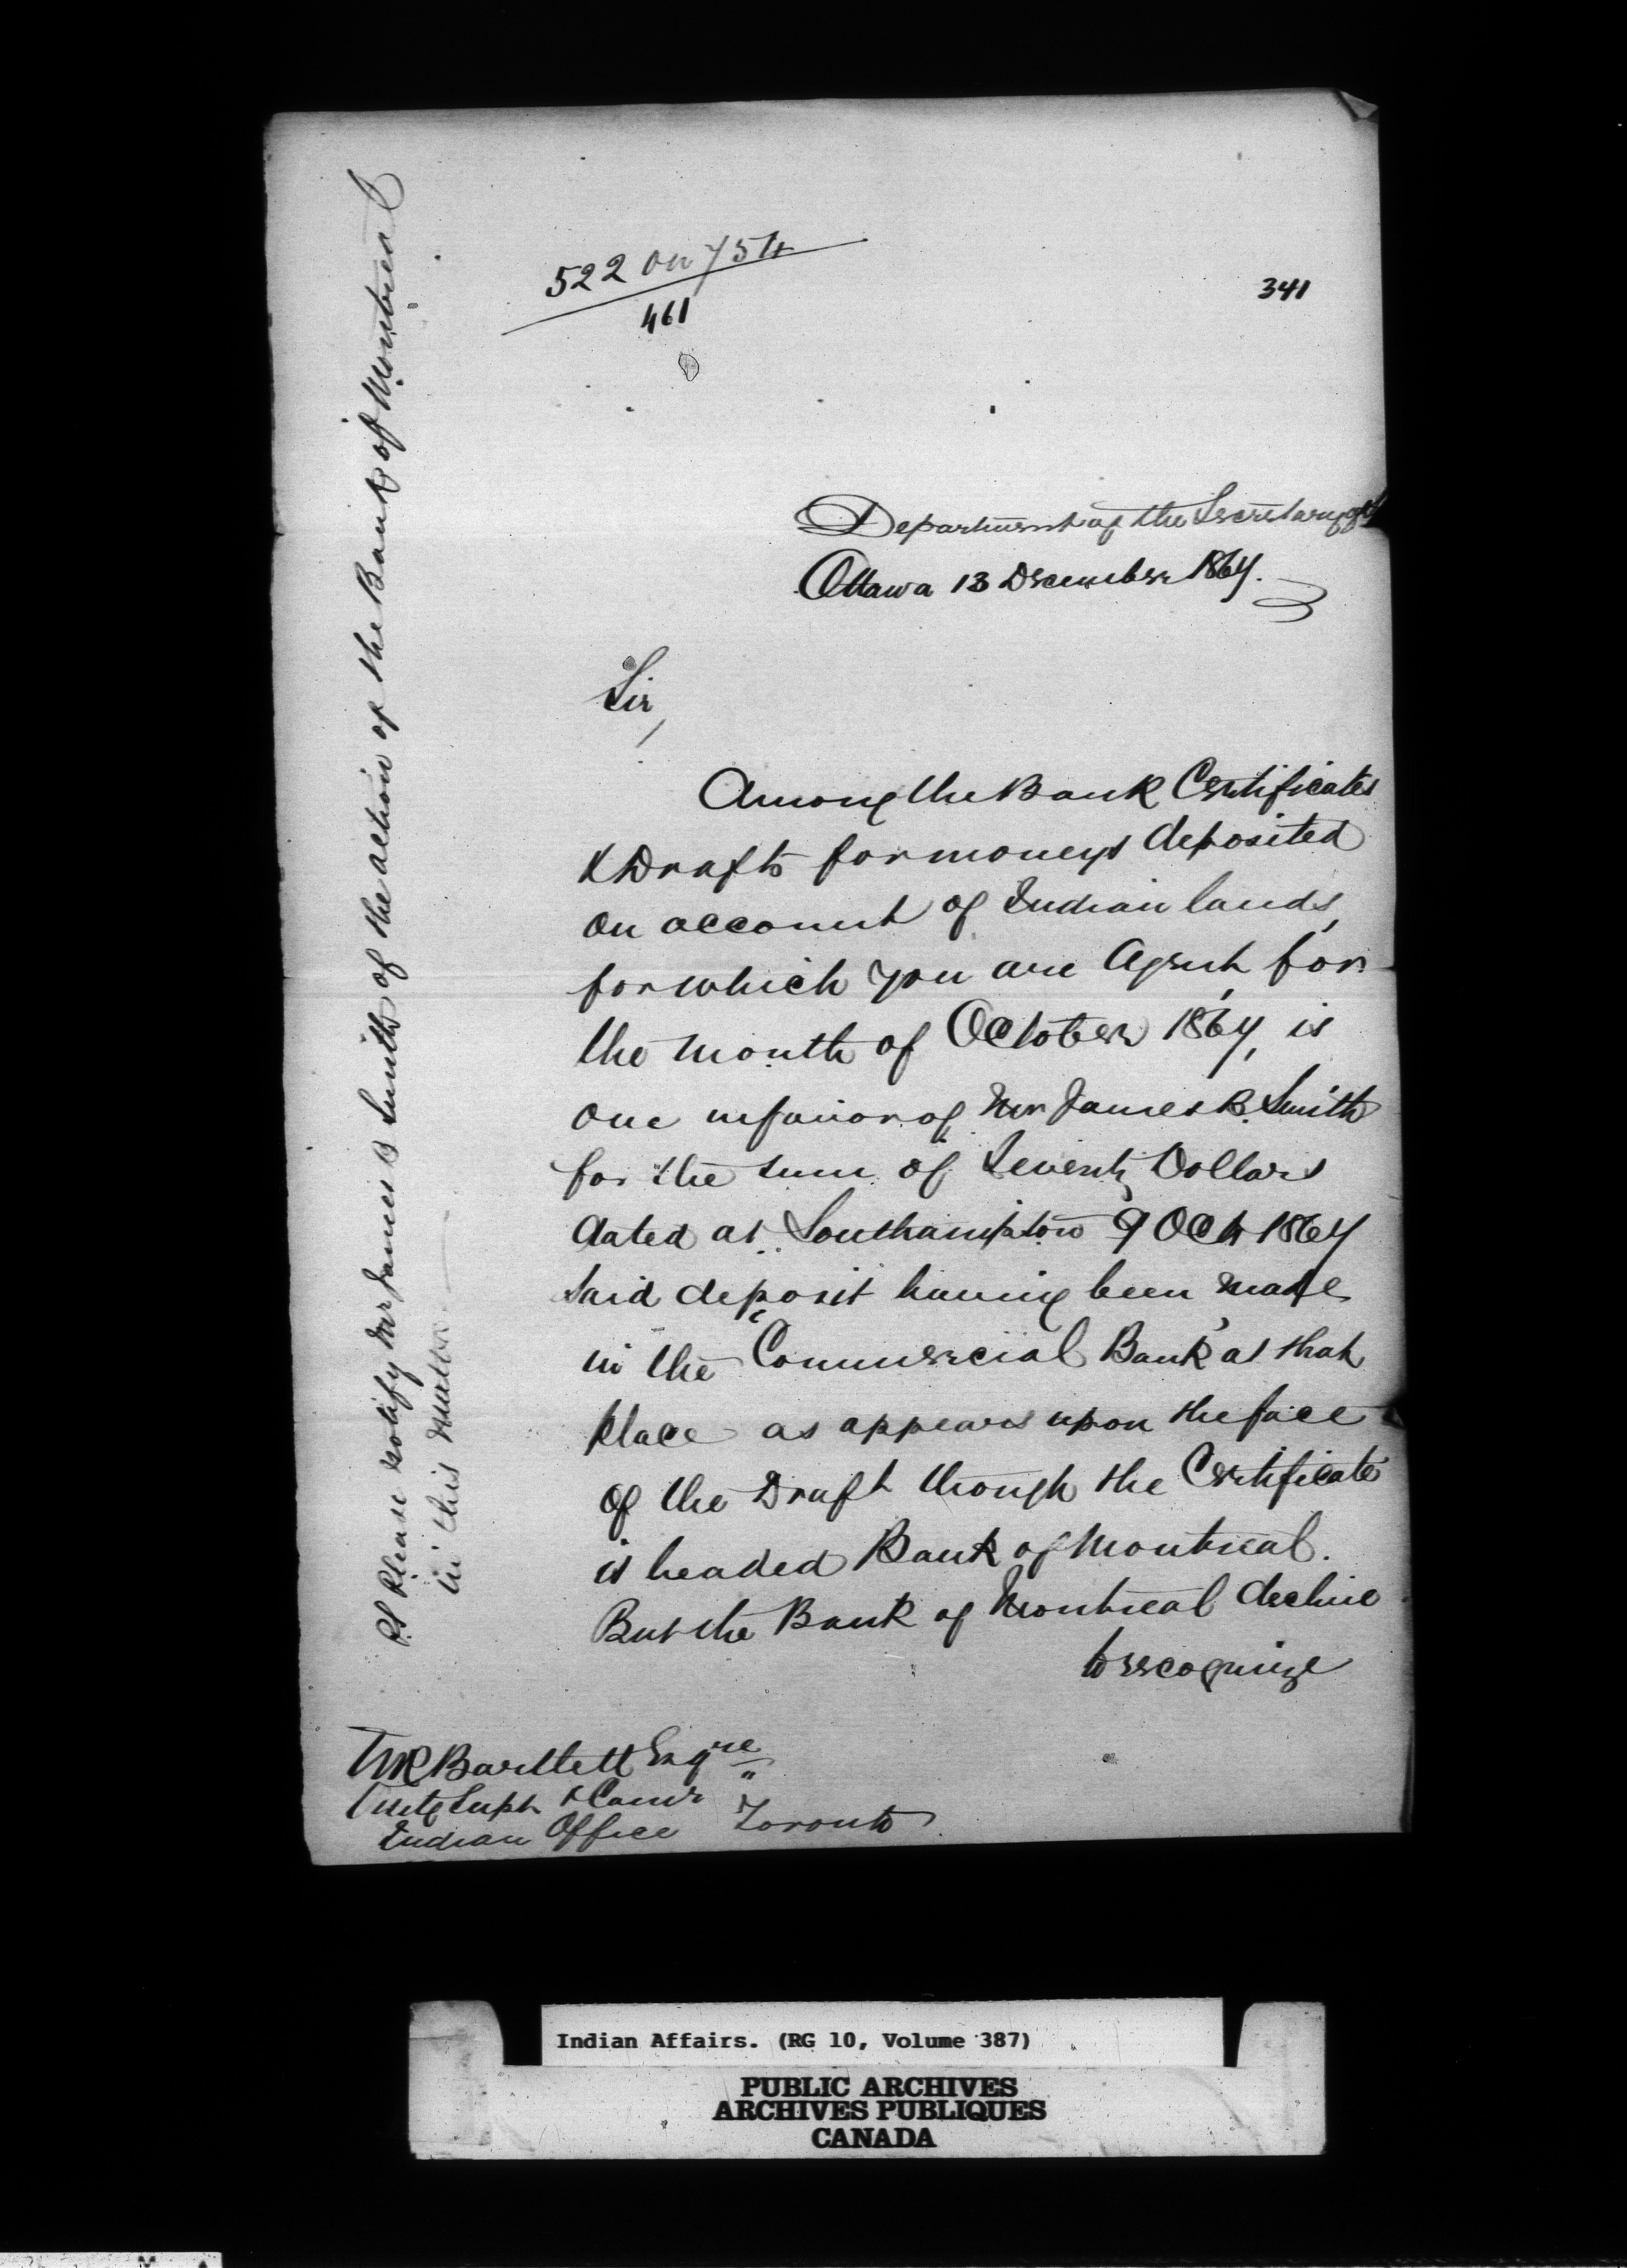 522 on 754
461
341
Department of the Secretary of
Ottawa 13 December 1867.
Sir,
Among the Bank Certificates
& Drafts for moneys deposited
on account of Indian lands,
for which you are Agent, for
the month of October 1867, is
one in favor of Mr James B. Smith
for the sum of Seventy Dollars
dated at Southampton 9 Oct 1867
said deposit having been made
in the "Commercial Bank" at that
place as appears upon the face
of the Draft though the Certificate
is headed Bank of Montreal.
But the Bank of Montreal decline
to recognize
W R Bartlett Esqre
Suptt & Comr
Indian Office Toronto
P.S. Please notify Mr James B Smith of the action of the Bank of Montreal
in this matter.
Indian Affairs. (RG 10, Volume 387)
PUBLIC ARCHIVES
ARCHIVES PUBLIQUES
CANADA